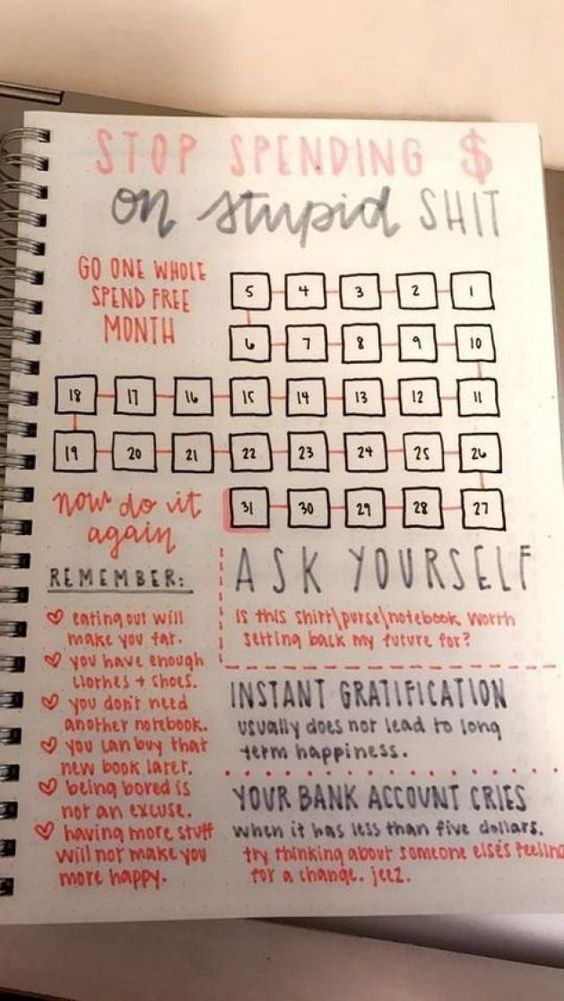 STOP SPENDING $
on stupid SHIT
GO ONE WHOLE
SPEND FREE
MONTH
5 4 3 2 1
6 7 8 9 10
18 17 16 15 14 13 12 11
19 20 21 22 23 24 25 26
31 30 29 28 27
now do it
again
REMEMBER:
eating out will
make you fat.
you have enough
clothes + shoes.
you don't need
another notebook.
you can buy that
new book later.
being bored is
not an excuse.
having more stuff
will not make you
more happy.
ASK YOURSELF
is this shirt\purse\notebook worth
setting back my future for?
INSTANT GRATIFICATION
usually does not lead to long
term happiness.
YOUR BANK ACCOUNT CRIES
when it has less than five dollars.
try thinking about someone else's feeling
for a change. jeez.